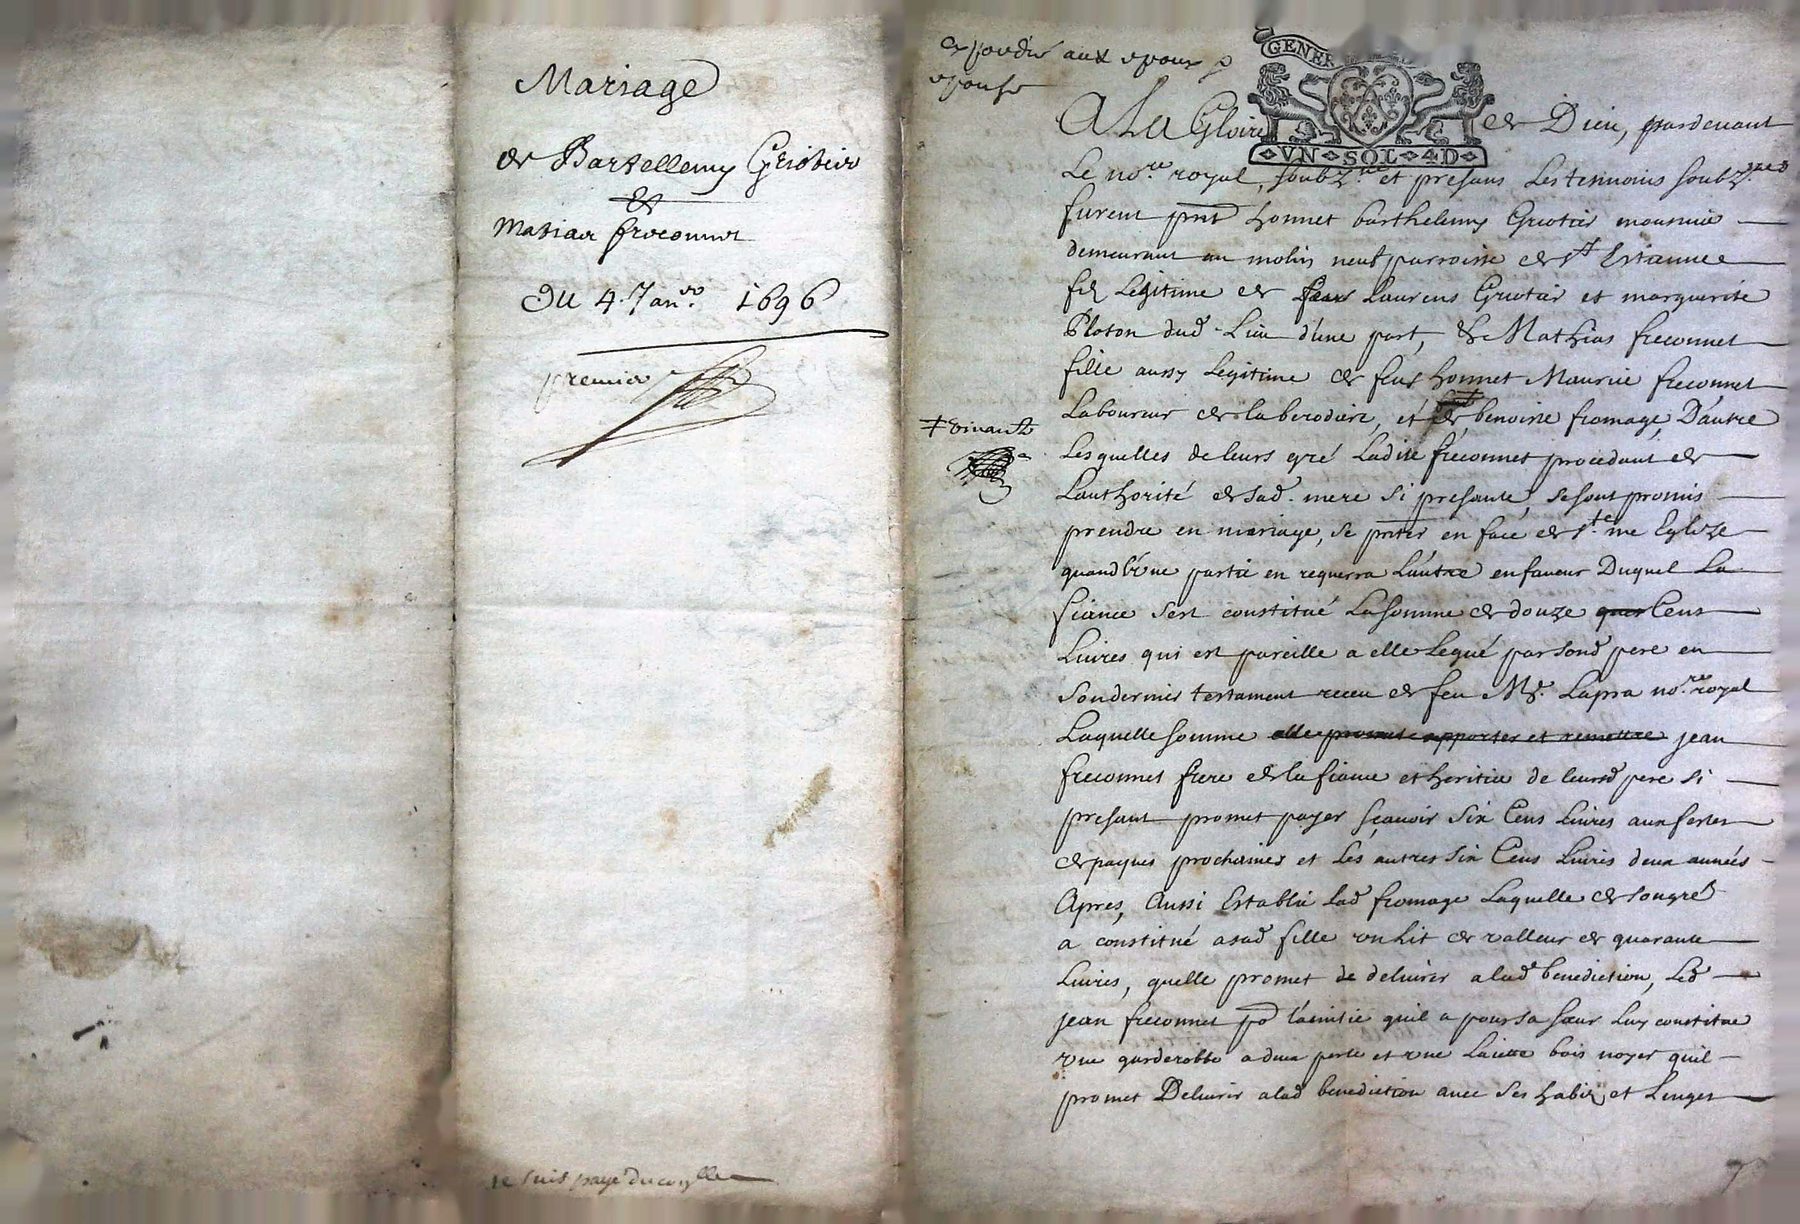 Mariage
de Bartellemy Griotier
&
Matiae freconnet
Du 4. Janer. 1696
premier
je suis payé du conlle
expédié aux époux &
épouse
GENER
VN SOL 4D
A La Gloire de Dieu, pardevant
Le nore. royal, soubzne. et presans les temoins soubznes
furent pnt honnet barthelemy Griotier meusnier
demeurant au molin neuf parroisse de st Estienne
filz Legitime de feu Laurens Griotier et marguerite
Ploton dud. Lieu d'une part, et Mathias freconnet
fille aussy Legitime de feu honnet Maurice freconnet
Laboureur de laberodiere, et de benoiste fromage, D'autre
‡ vivante
Lesquelles de leurs gré Ladite freconnet procedant de
L'authorité de sad. mere si presante, se sont promis
prendre en mariage, se pnter en face de ste. me Eglize
quand l'une partie en requerra L'autre en faveur Duquel La
fiance s'est constitué La somme de douze quer Cens
Livres qui est pareille a elle Legué par sond pere en
son dernier testament receu de feu Me. Lapra nore. royal
Laquelle somme elle promet apporter et remettre jean
freconnet frere de la fiance et heritier de leurd pere si
presant promet payer sçavoir Six Cens Livres aux festes
de paques prochaines et Les autres Six Cens Livres deux années
Apres, Aussi Establie Lad fromage Laquelle de son gré
a constitué a sad fille un Lit de valleur de quarante
Livres, quelle promet de delivrer a lad benediction, Led
jean freconnet po L'amitié quil a pour sa sœur Luy constitue
une garderobbe a deux porte et une Laiette bois noyer quil
promet Delivrer a lad benediction avec ses habitz et Linges